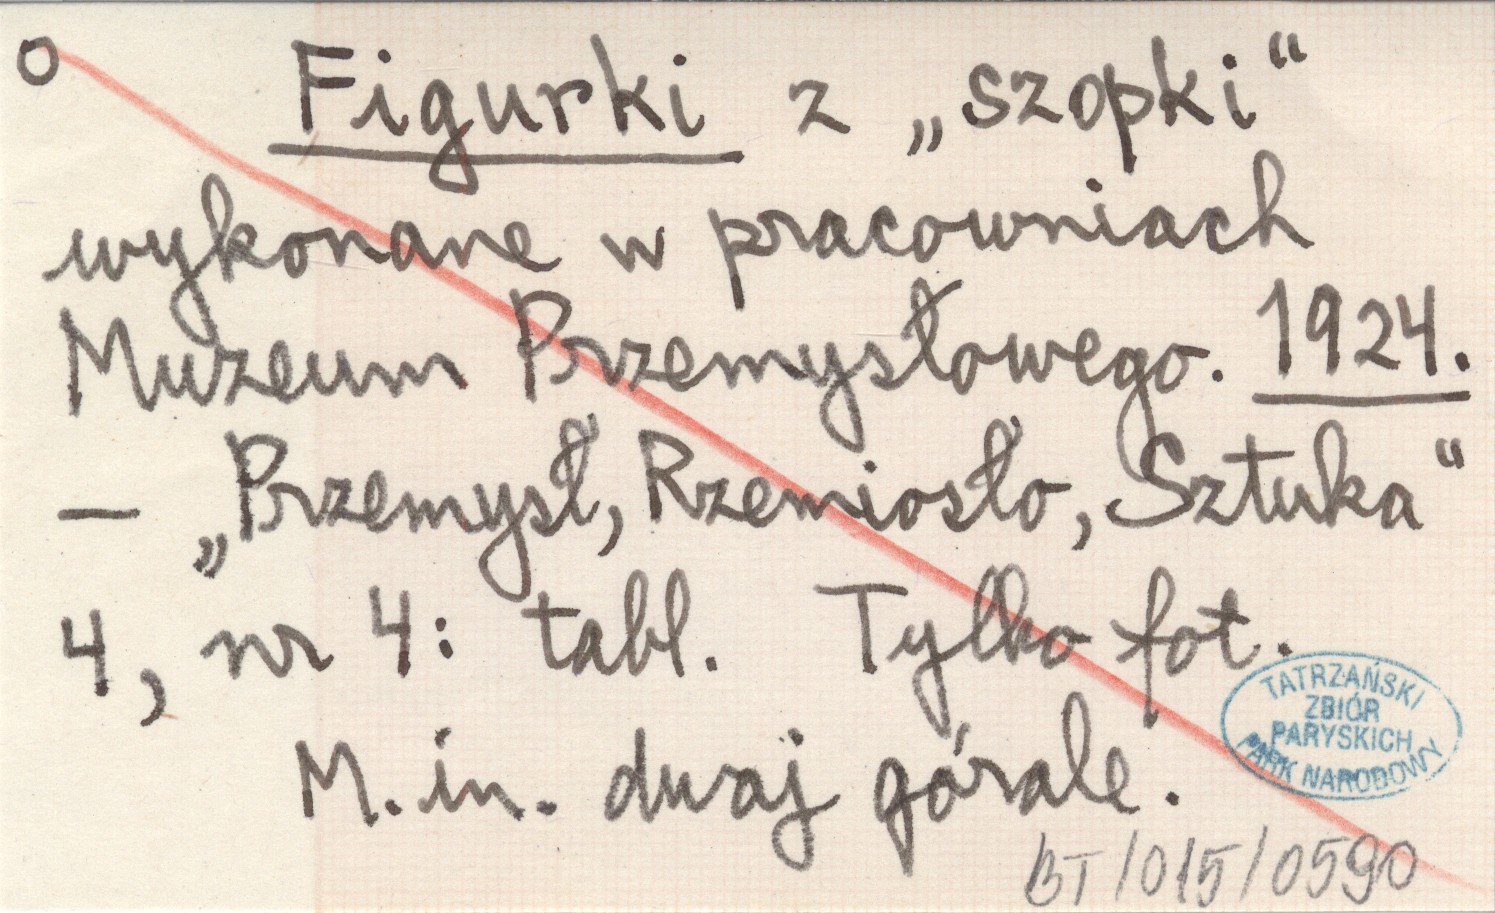 o Figurki z „szopki“
wykonane w pracowniach
Muzeum Przemysłowego. 1924.
— „Przemysł, Rzemiosło, Sztuka“
4, nr 4: tabl. Tylko fot.
M. in. dwaj górale.
TATRZAŃSKI
ZBIÓR
PARYSKICH
PARK NARODOWY
BT/015/0590